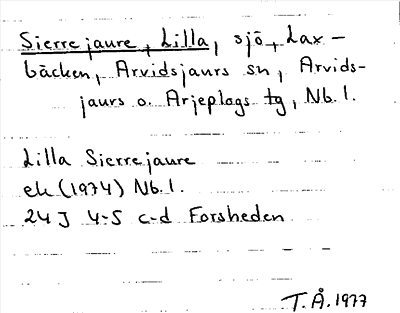 Sierrejaure, Lilla, sjö, Lax-
bäcken, Arvidsjaurs sn, Arvids-
jaurs o. Arjeplogs tg, Nb. l.
Lilla Sierrejaure
ek (1974) Nb. l.
24 J 4-5 c-d Forsheden
T.Å. 1977